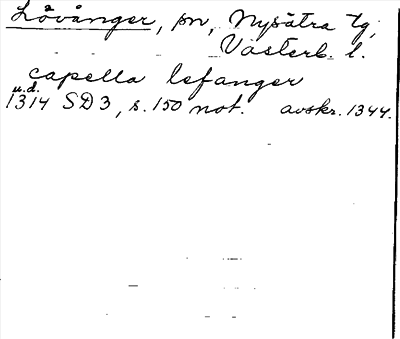 Lövånger, sn, Nysätra tg,
Västerb. l.
capella lefanger
u.d.
1314 SD3, s. 150 not. avskr. 1344.